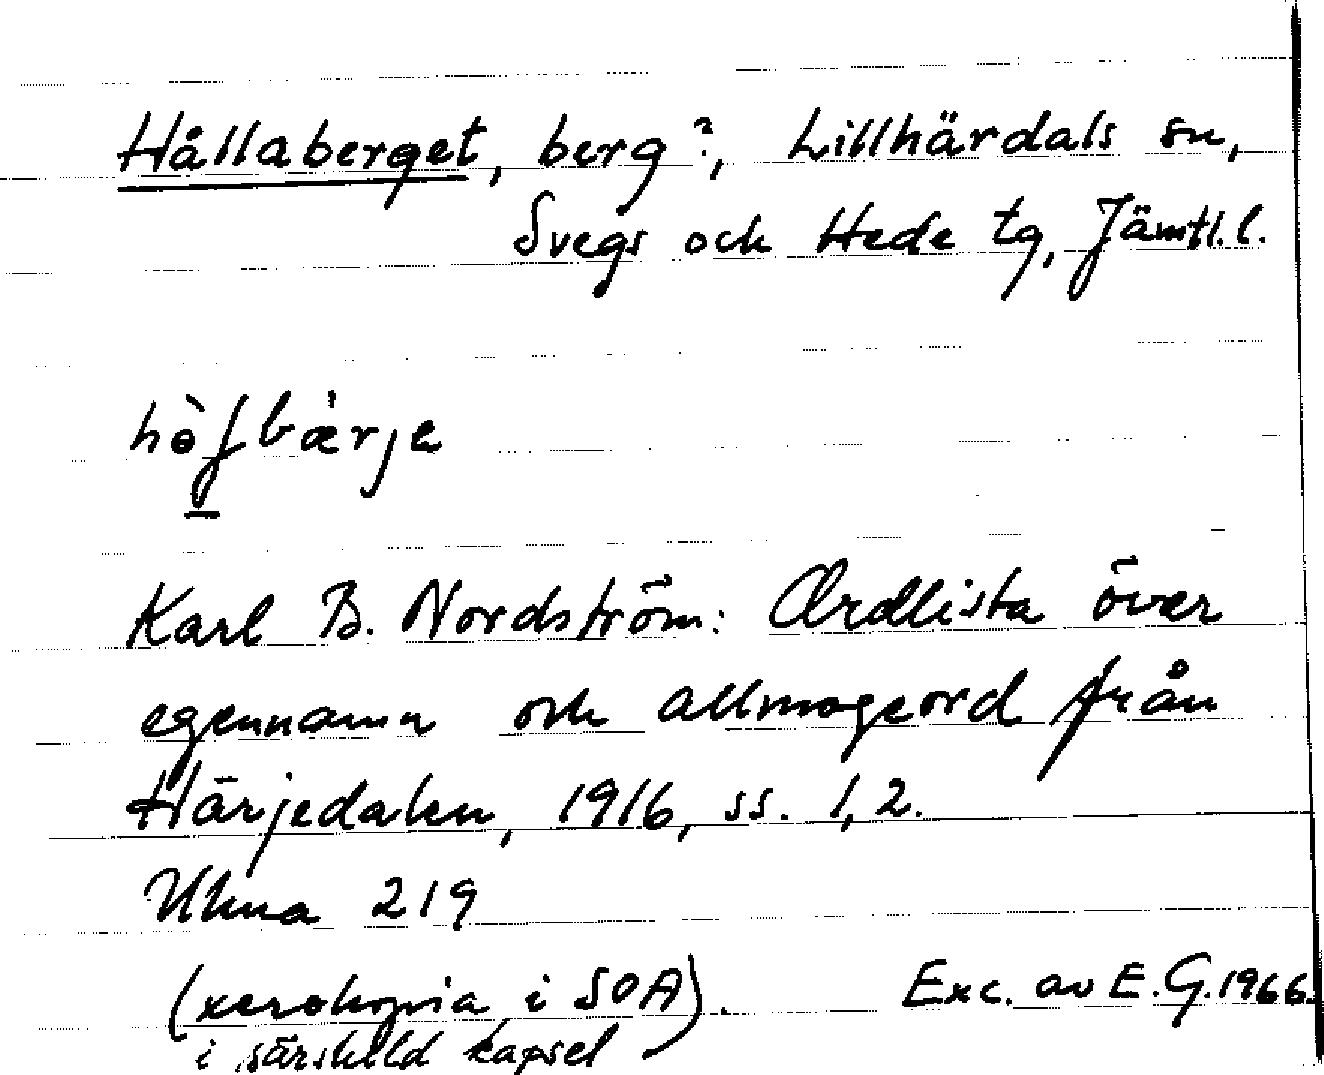 Hållaberget, berg?, Lillhärdals sn,
Svegs och Hede tg, Jämtl.l.
Karl B. Nordström: Ordlista över
egennamn och allmogeord från
Härjedalen, 1916, ss. 1,2.
Ulma 219
(xerokopia i SOA).
i särskild kapsel
Exc. av E.G. 1966.